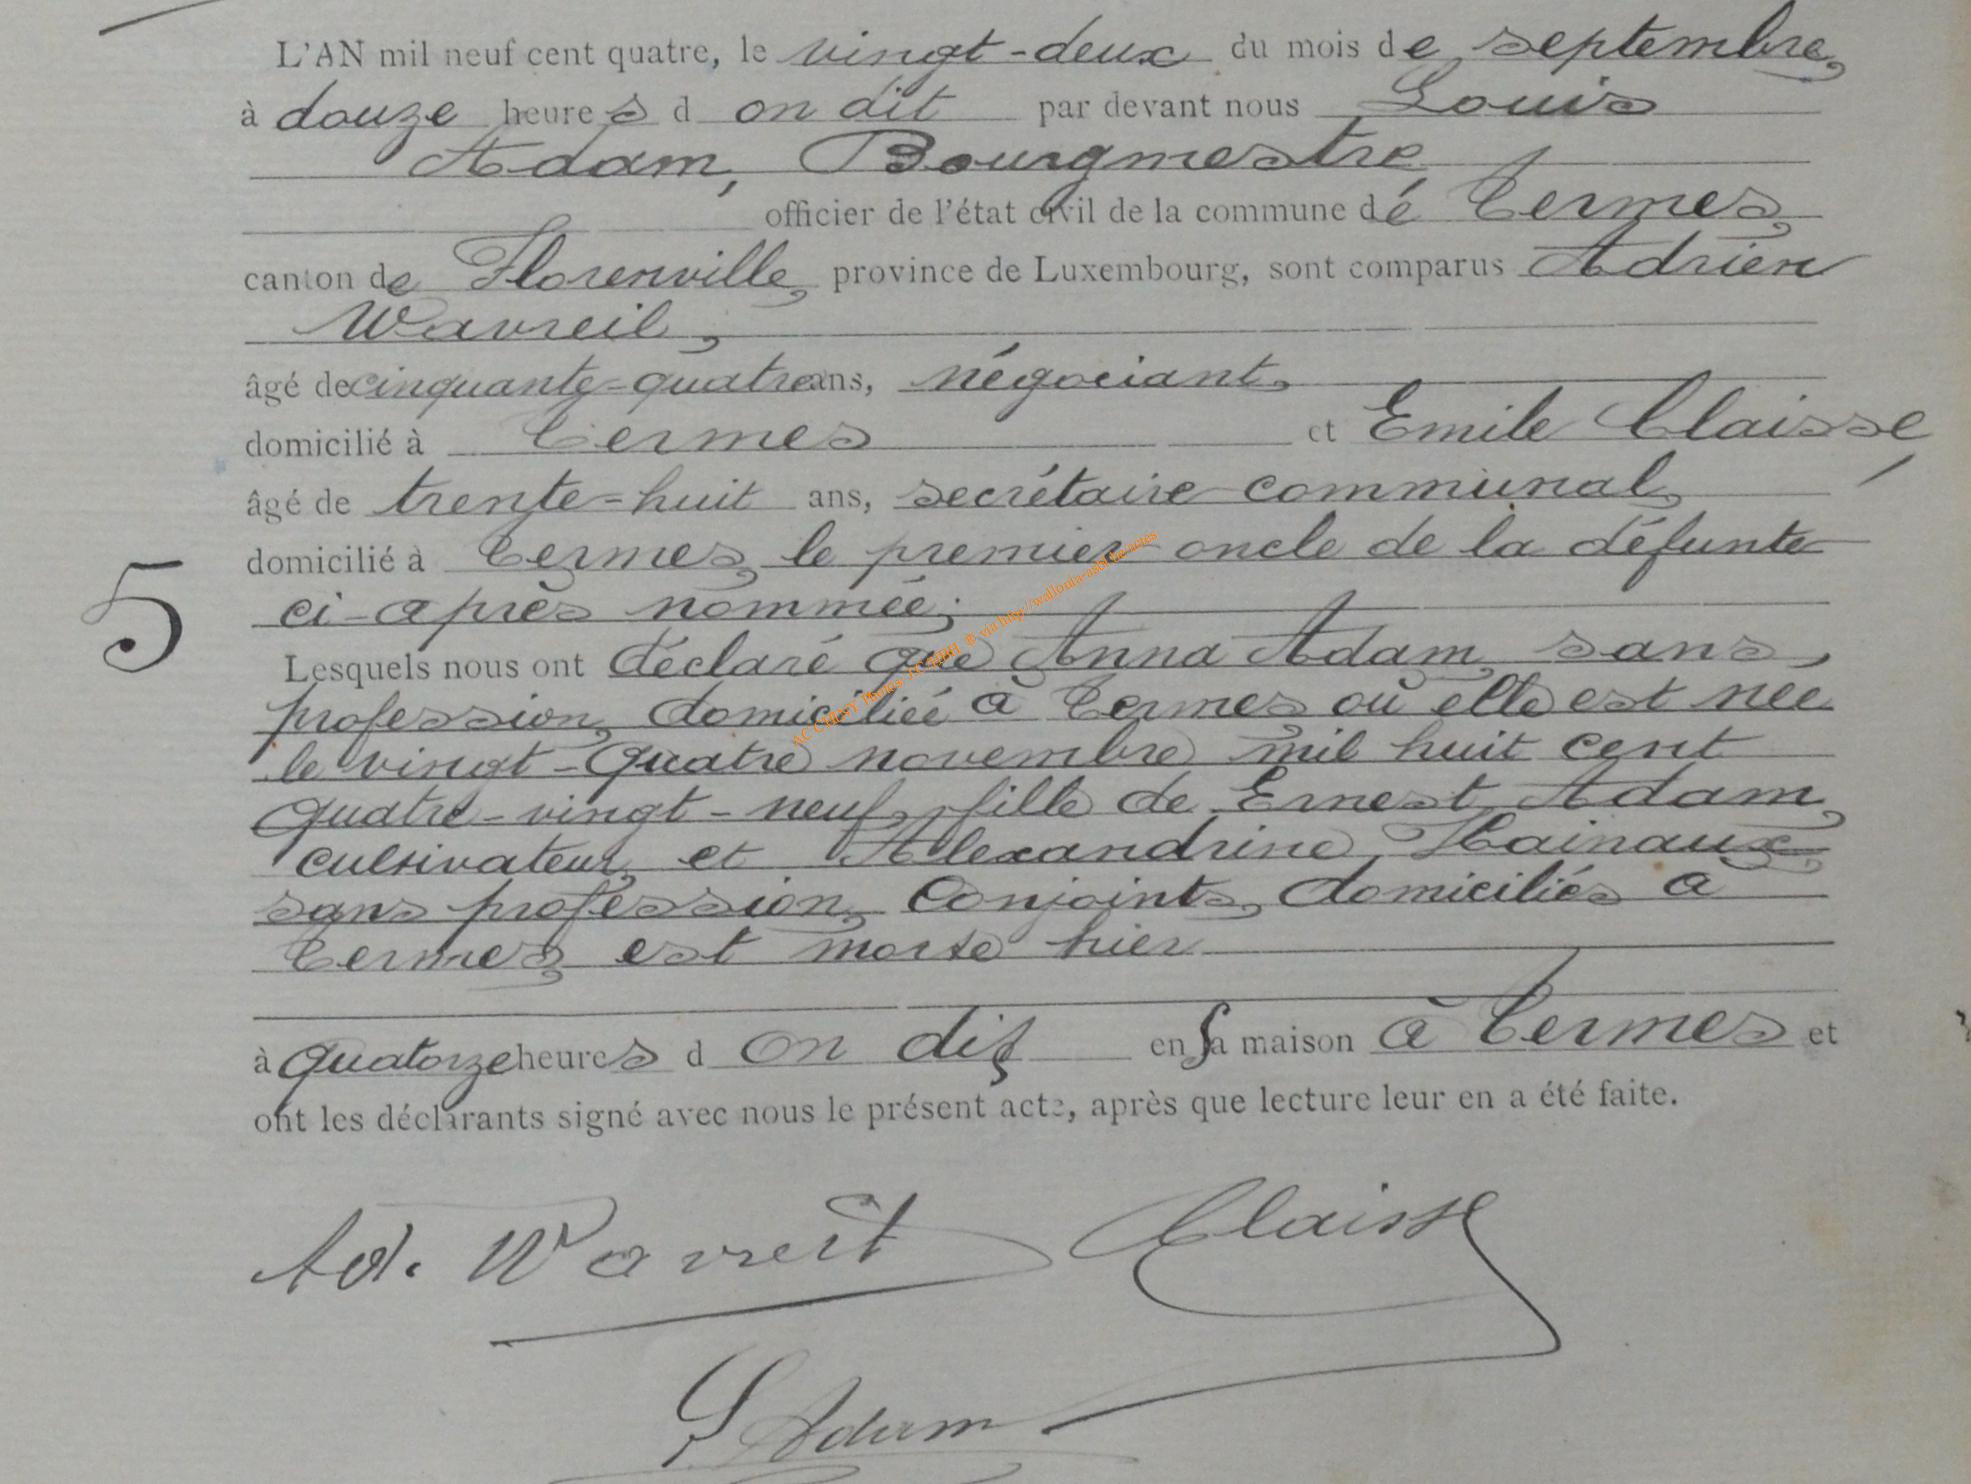 L'AN mil neuf cent quatre, le vingt-deux du mois de septembre,
à douze heures d on dit par devant nous Louis
Adam, Bourgmestre
officier de l'état civil de la commune dé Termes,
canton de Florenville, province de Luxembourg, sont comparus Adrien
Wavreil,
âgé de cinquante-quatre ans, négociant,
domicilié à Termes et Emile Claisse,
âgé de trente-huit ans, secrétaire communal,
domicilié à Termes, le premier oncle de la défunte
ci-après nommée;
5
Lesquels nous ont déclaré que Anna Adam, sans
profession, domiciliée à Termes où elle est née
le vingt-quatre novembre mil huit cent
quatre-vingt-neuf, fille de Ernest Adam,
cultivateur, et Alexandrine Hainaux,
sans profession, conjoints, domiciliés à
Termes, est morte hier
à quatorze heures d on dit en sa maison à Termes et
ont les déclarants signé avec nous le présent acte, après que lecture leur en a été faite.
Ad. Wavreil Claisse
L Adam
AC CHINY Photos via http://wallonia-asbl.be/actes